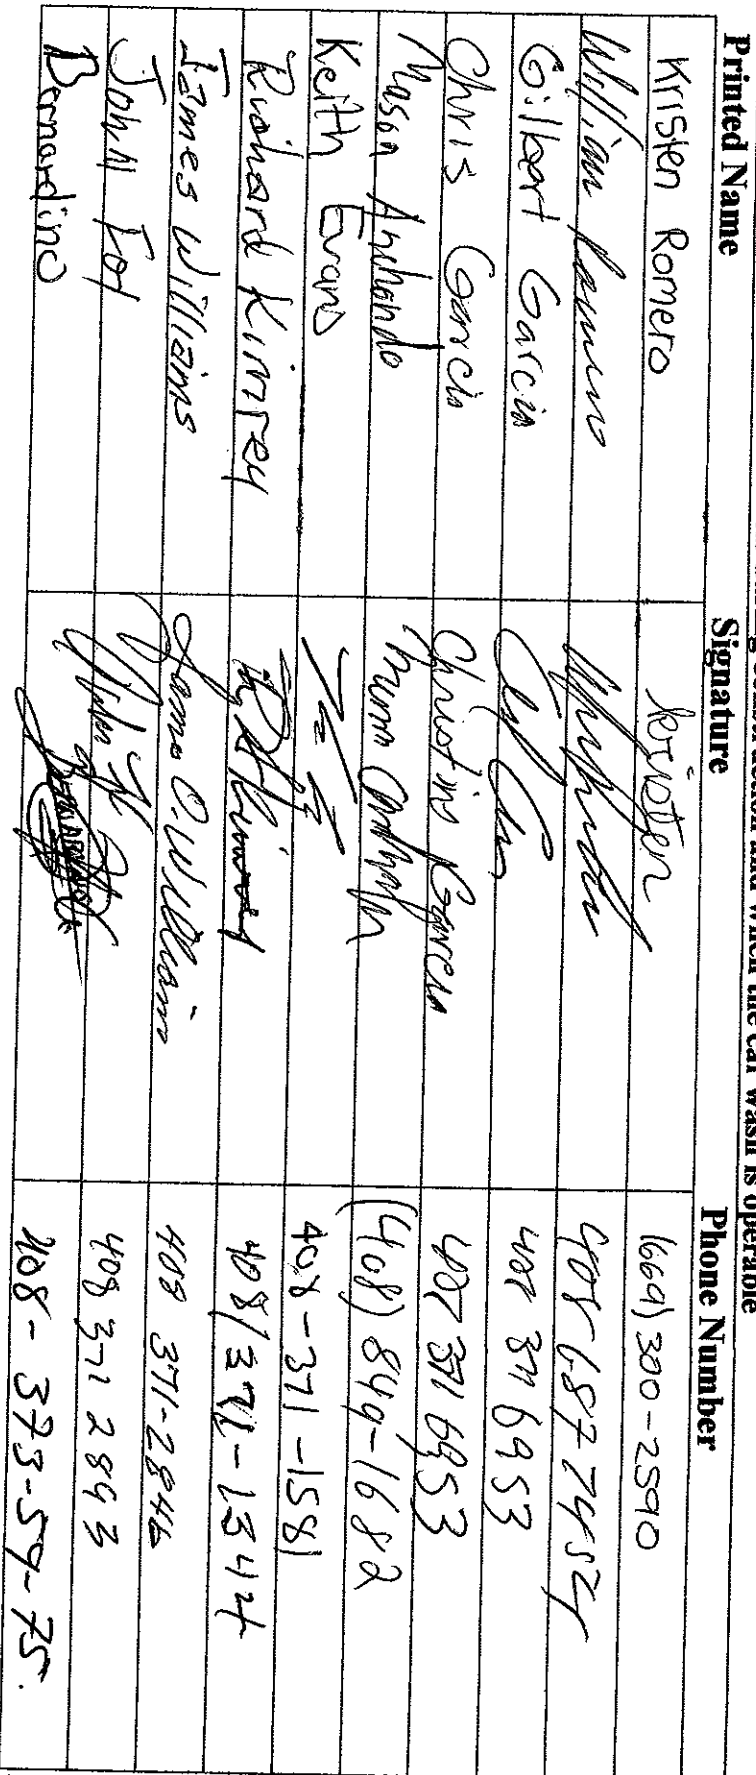 and when the car wash is operable
Printed Name Signature Phone Number
Kristen Romero Kristen (669) 300-2590
William
Gilbert Garcia 408 371 6953
Chris Garcia Christine Garcia 408 371 6953
Mason (408) 849-1682
Keith Evans 408-371-1581
Richard Kimrey 408/371-1344
James Williams James O. William 408 371-2846
John Foy 408 371 2893
Bernardino 408-373-59-75.